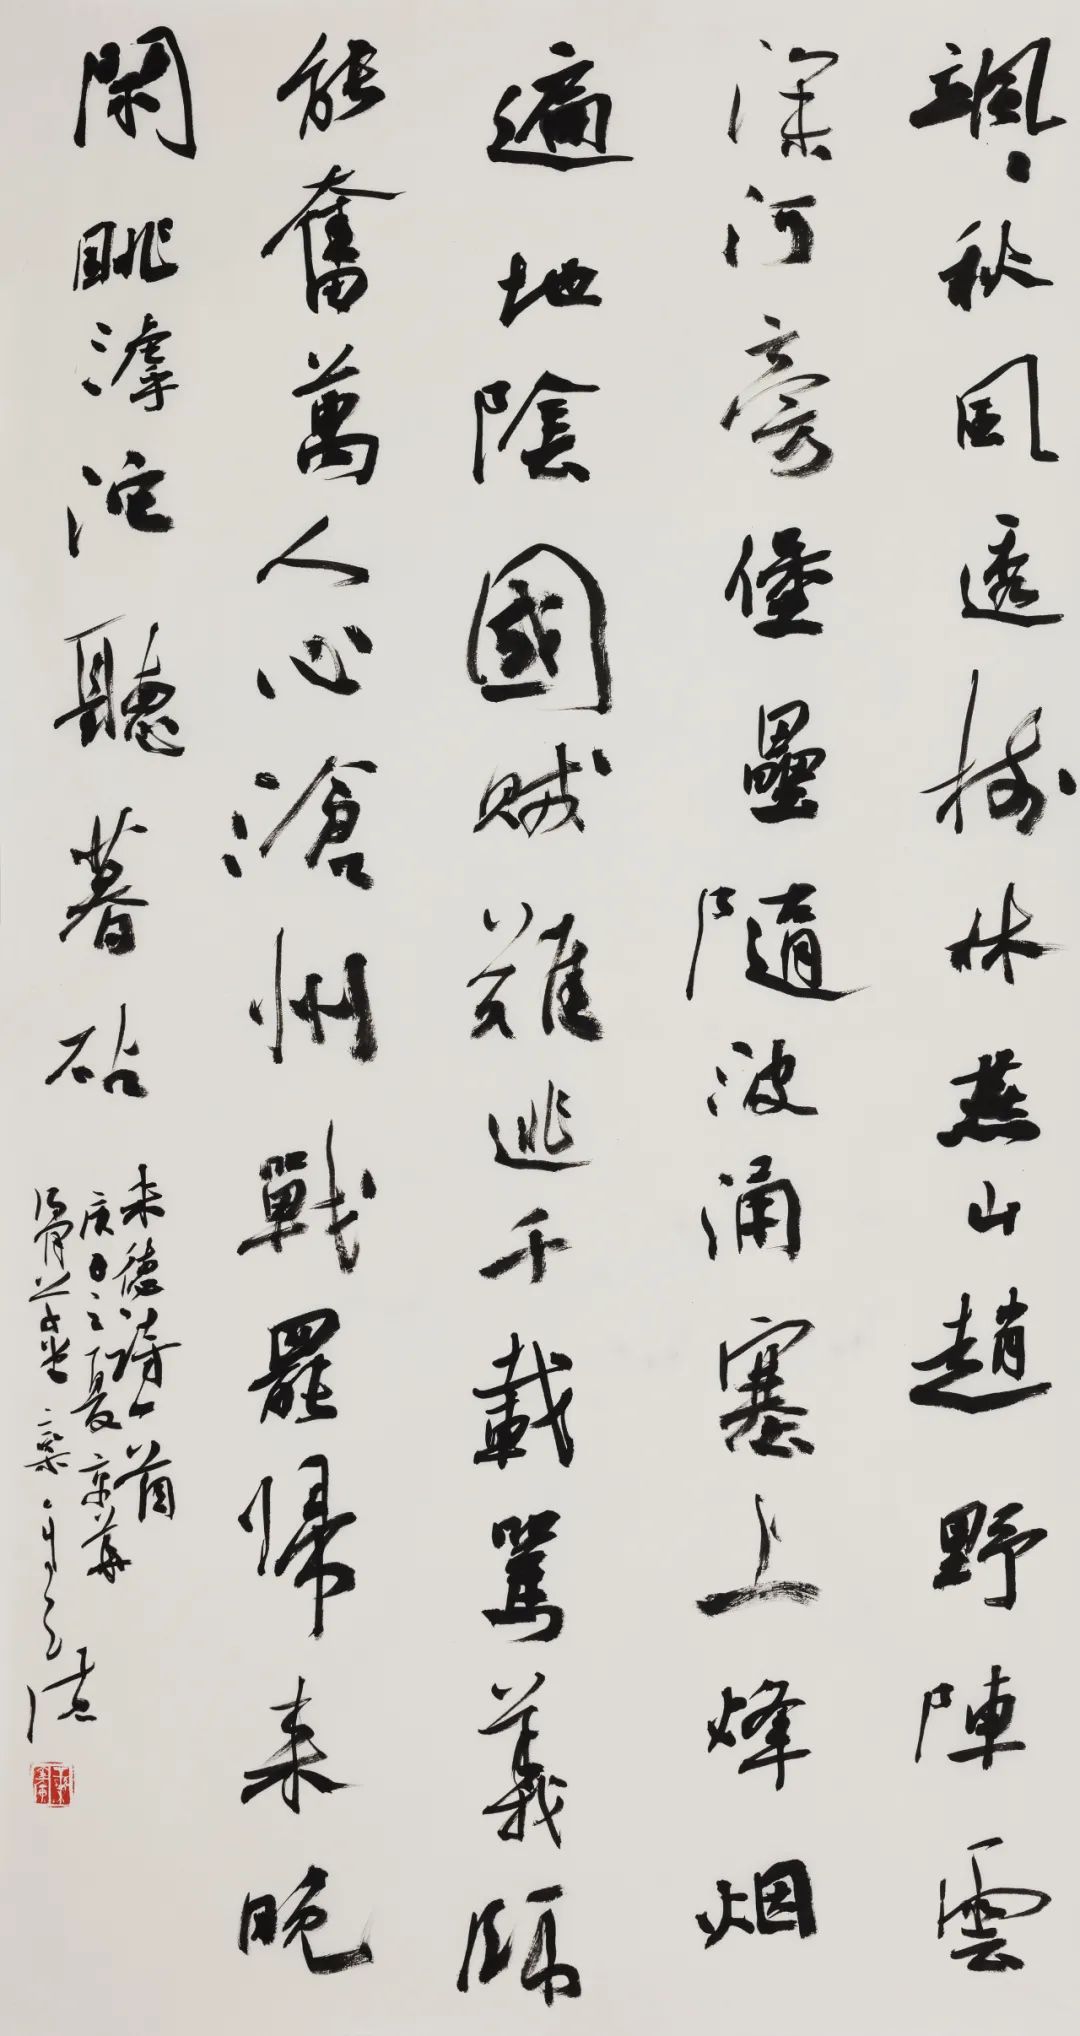 颯〻秋風透樹林燕山趙野陣雲
深河旁堡壘隨波涌塞上烽烟
遍地陰國賊難逃千載罵義師
能奮萬人心滄州戰罷歸来晚
閑眺滹沱聽暮砧
朱德詩一首
庚子之夏京華